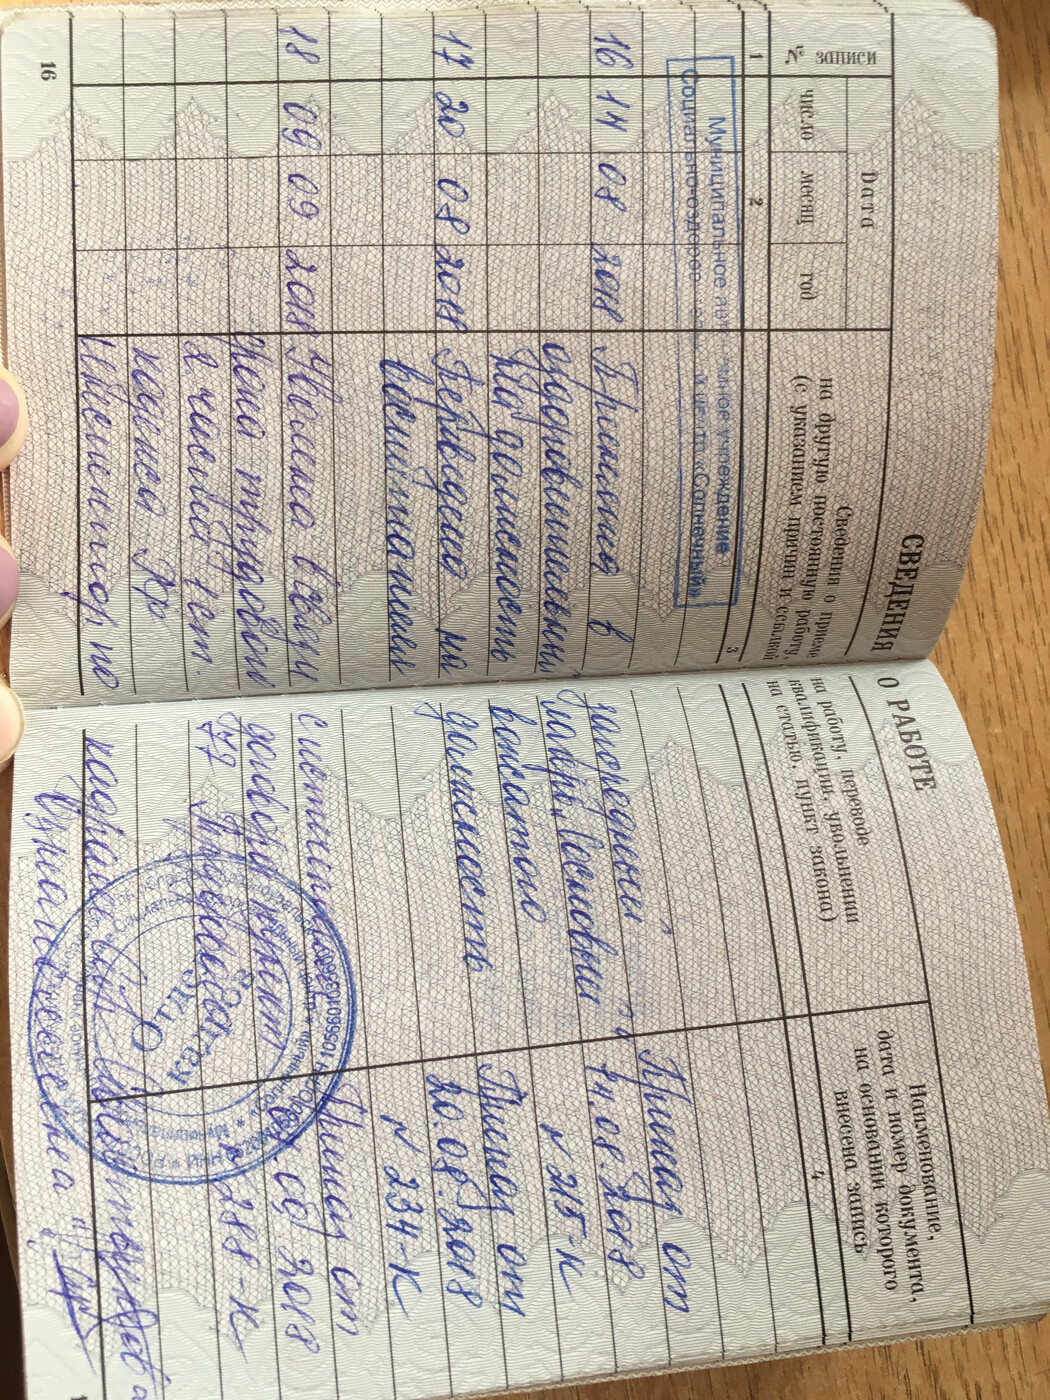 СВЕДЕНИЯ О РАБОТЕ
№ записи
Дата
число
месяц
год
Сведения о приеме на работу, переводе
на другую постоянную работу, квалификации, увольнении
(с указанием причин и ссылкой на статью, пункт закона)
Наименование,
дата и номер документа,
на основании которого
внесена запись
1
2
3
4
Муниципальное учреждение
«Солнечный»
16 14 08 2018 Принята в загородный Приказ от
оздоровительный лагерь „Сосновый" 14.08.2018
на должность вожатого № 215-к
17 20 08 2018 Переведена на должность Приказ от
воспитателя 20.08.2018
№ 234-к
18 09 09 2018 Уволена в связи с истечением Приказ от
срока трудового договора, пункт 09.2018
2 части 1 ст. 77 Трудового № 288-к
кодекса РФ
Отдел
кадров
Инспектор по кадрам
16